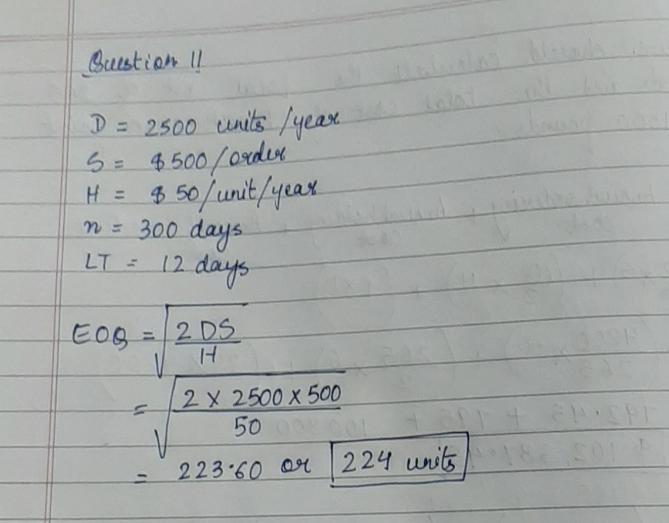 Question 11
D = 2500 units/year
S = $500/order
H = $50/unit/year
n = 300 days
LT = 12 days
EOQ = √(2DS/H)
= √(2 × 2500 × 500/50)
= 223.60 or 224 units